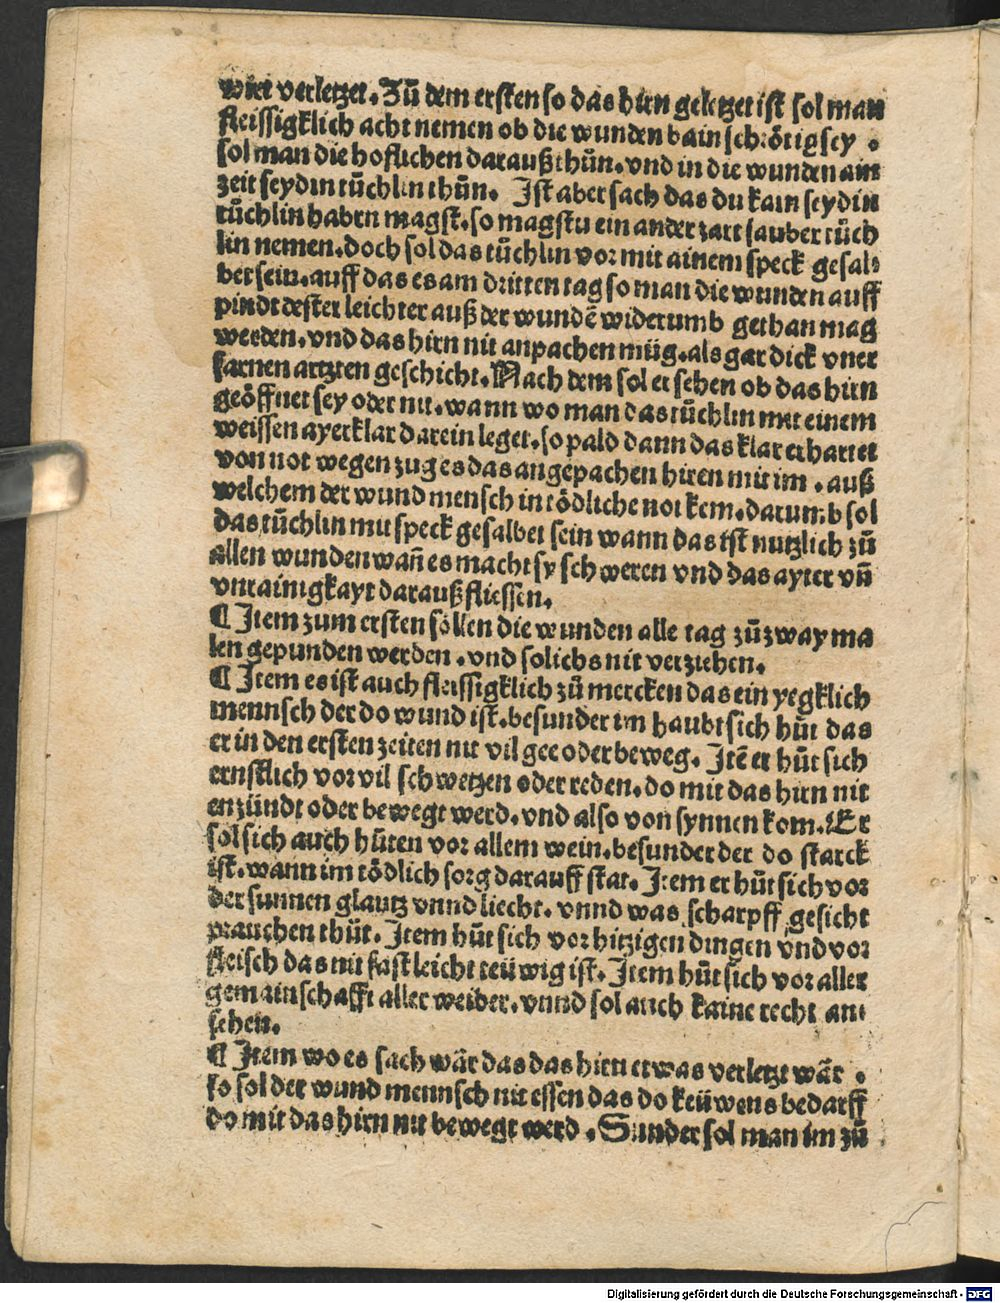 wirt verletzet. Zů dem ersten so das hirn geletzet ist sol man
fleissigklich acht nemen ob die wunden bain schrötig sey .
sol man die hoflichen darauß thůn. vnd in die wunden ain
zeit seydin tůchlin thůn. Ist aber sach das du kain seydin
tůchlin haben magst. so magstu ein ander zart sauber tůch
lin nemen. doch sol das tůchlin vor mit ainem speck gesal⸗
bet sein. auff das es am dritten tag so man die wunden auff
pindt dester leichter auß der wundē widerumb gethan mag
werden. vnd das hirn nit anpachen müg. als gar dick vner
farnen artzten geschicht. Nach dem sol er sehen ob das hirn
geöffnet sey oder nit. wann wo man das tůchlin mit einem
weissen ayerklar darein leget. so pald dann das klar erhartet
von not wegen zug es das angepachen hiren mit im . auß
welchem der wund mensch in tödliche not kem. darumb sol
das tůchlin mit speck gesalbet sein wann das ist nutzlich zů
allen wunden wañ es macht sy schweren vnd das ayter vñ
vnrainigkayt darauß fliessen.
¶ Item zum ersten söllen die wunden alle tag zů zway ma
len gepunden werden . vnd solichs nit verziehen.
¶ Item es ist auch fleissigklich zů mercken das ein yegklich
mennsch der do wund ist. besunder im haubt sich hůt das
er in den ersten zeiten nit vil gee oder beweg. Itē er hůt sich
ernstlich vor vil schwetzen oder reden. do mit das hirn nit
enzündt oder bewegt werd. vnd also von synnen kom. Er
sol sich auch hůten vor allem wein. besunder der do starck
ist. wann im tödlich sorg darauff stat. Item er hůt sich vor
der sunnen glantz vnnd liecht. vnnd was scharpff gesicht
prauchen thůt. Item hůt sich vor hitzigen dingen vnd vor
fleisch das nit fast leicht teüwig ist. Item hůt sich vor aller
gemainschafft aller weiber. vnnd sol auch kaine recht an⸗
sehen.
¶ Item wo es sach wär das das hirn etwas verletzt wär .
so sol der wund mennsch nit essen das do keüwens bedarff
do mit das hirn nit bewegt werd . Sunder sol man im zů
Digitalisierung gefördert durch die Deutsche Forschungsgemeinschaft - DFG